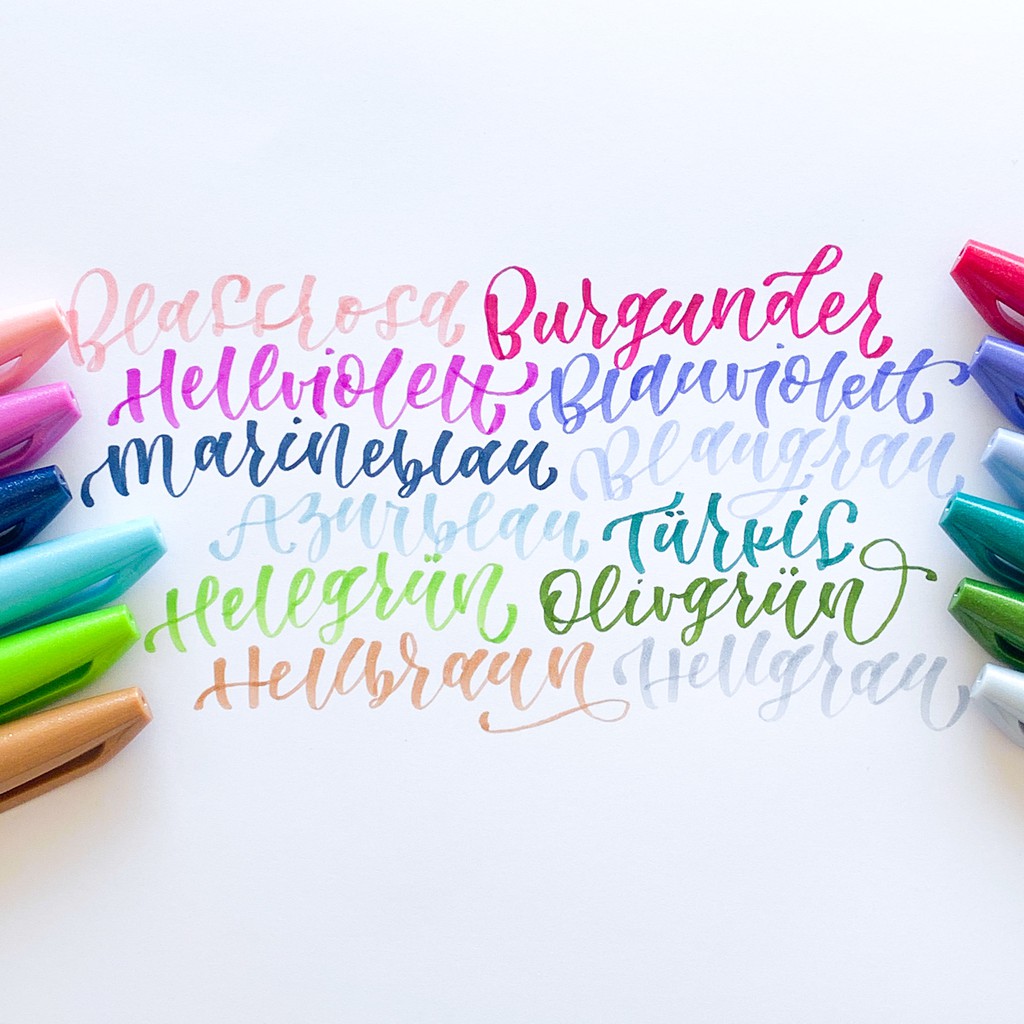 Blassrosa Burgunder
Hellviolett Blauviolett
Marineblau Blaugrau
Azurblau Türkis
Hellgrün Olivgrün
Hellbraun Hellgrau